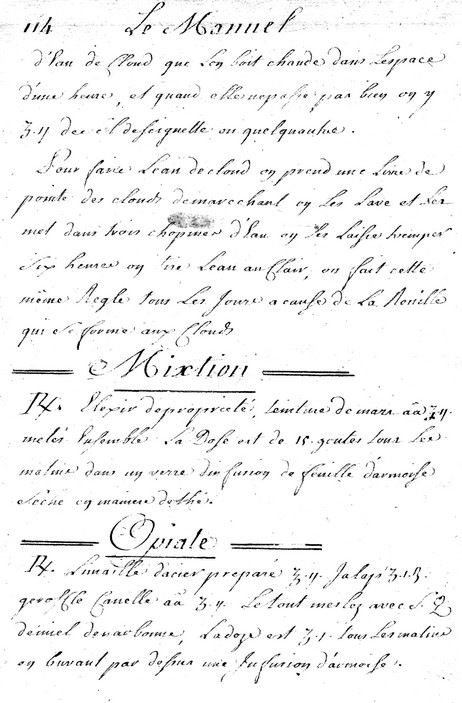 114 Le Manuel
d'Eau de Cloud que Lon boit chaude dans Lespace
d'une heure, et quand elle ne passe pas bien on y
ʒ.ij de sel deseignette ou quelquautre.
Pour faire Leau decloud on prend une Livre de
pointe des clouds demarechant on Les Lave et Les
met dans trois chopines d'Eau on Les Laisse tremper
Six heures on tire Leau au Clair, on fait cette
même Regle tous Les Jours a cause de La Rouille
qui Se forme aux Clouds
Mixtion
R/. Elixir depropriété, teinture demars aã ʒ.ij.
melés Ensemble. La Dose est de 15. goutes tous Les
matins dans un verre dinfusion de feuille d'armoise
Seche en maniere dethé.
Opiate
R/. Limaille d'acier preparé ʒ.ij. Jalap ʒ.1.
gerofle Canelle aã ʒ.ij. Le tout meslez avec S. Q
demiel denarbonne, Ladoze est ʒ.1. tous Lesmatins
en buvant par dessus une Infusion d'armoise.